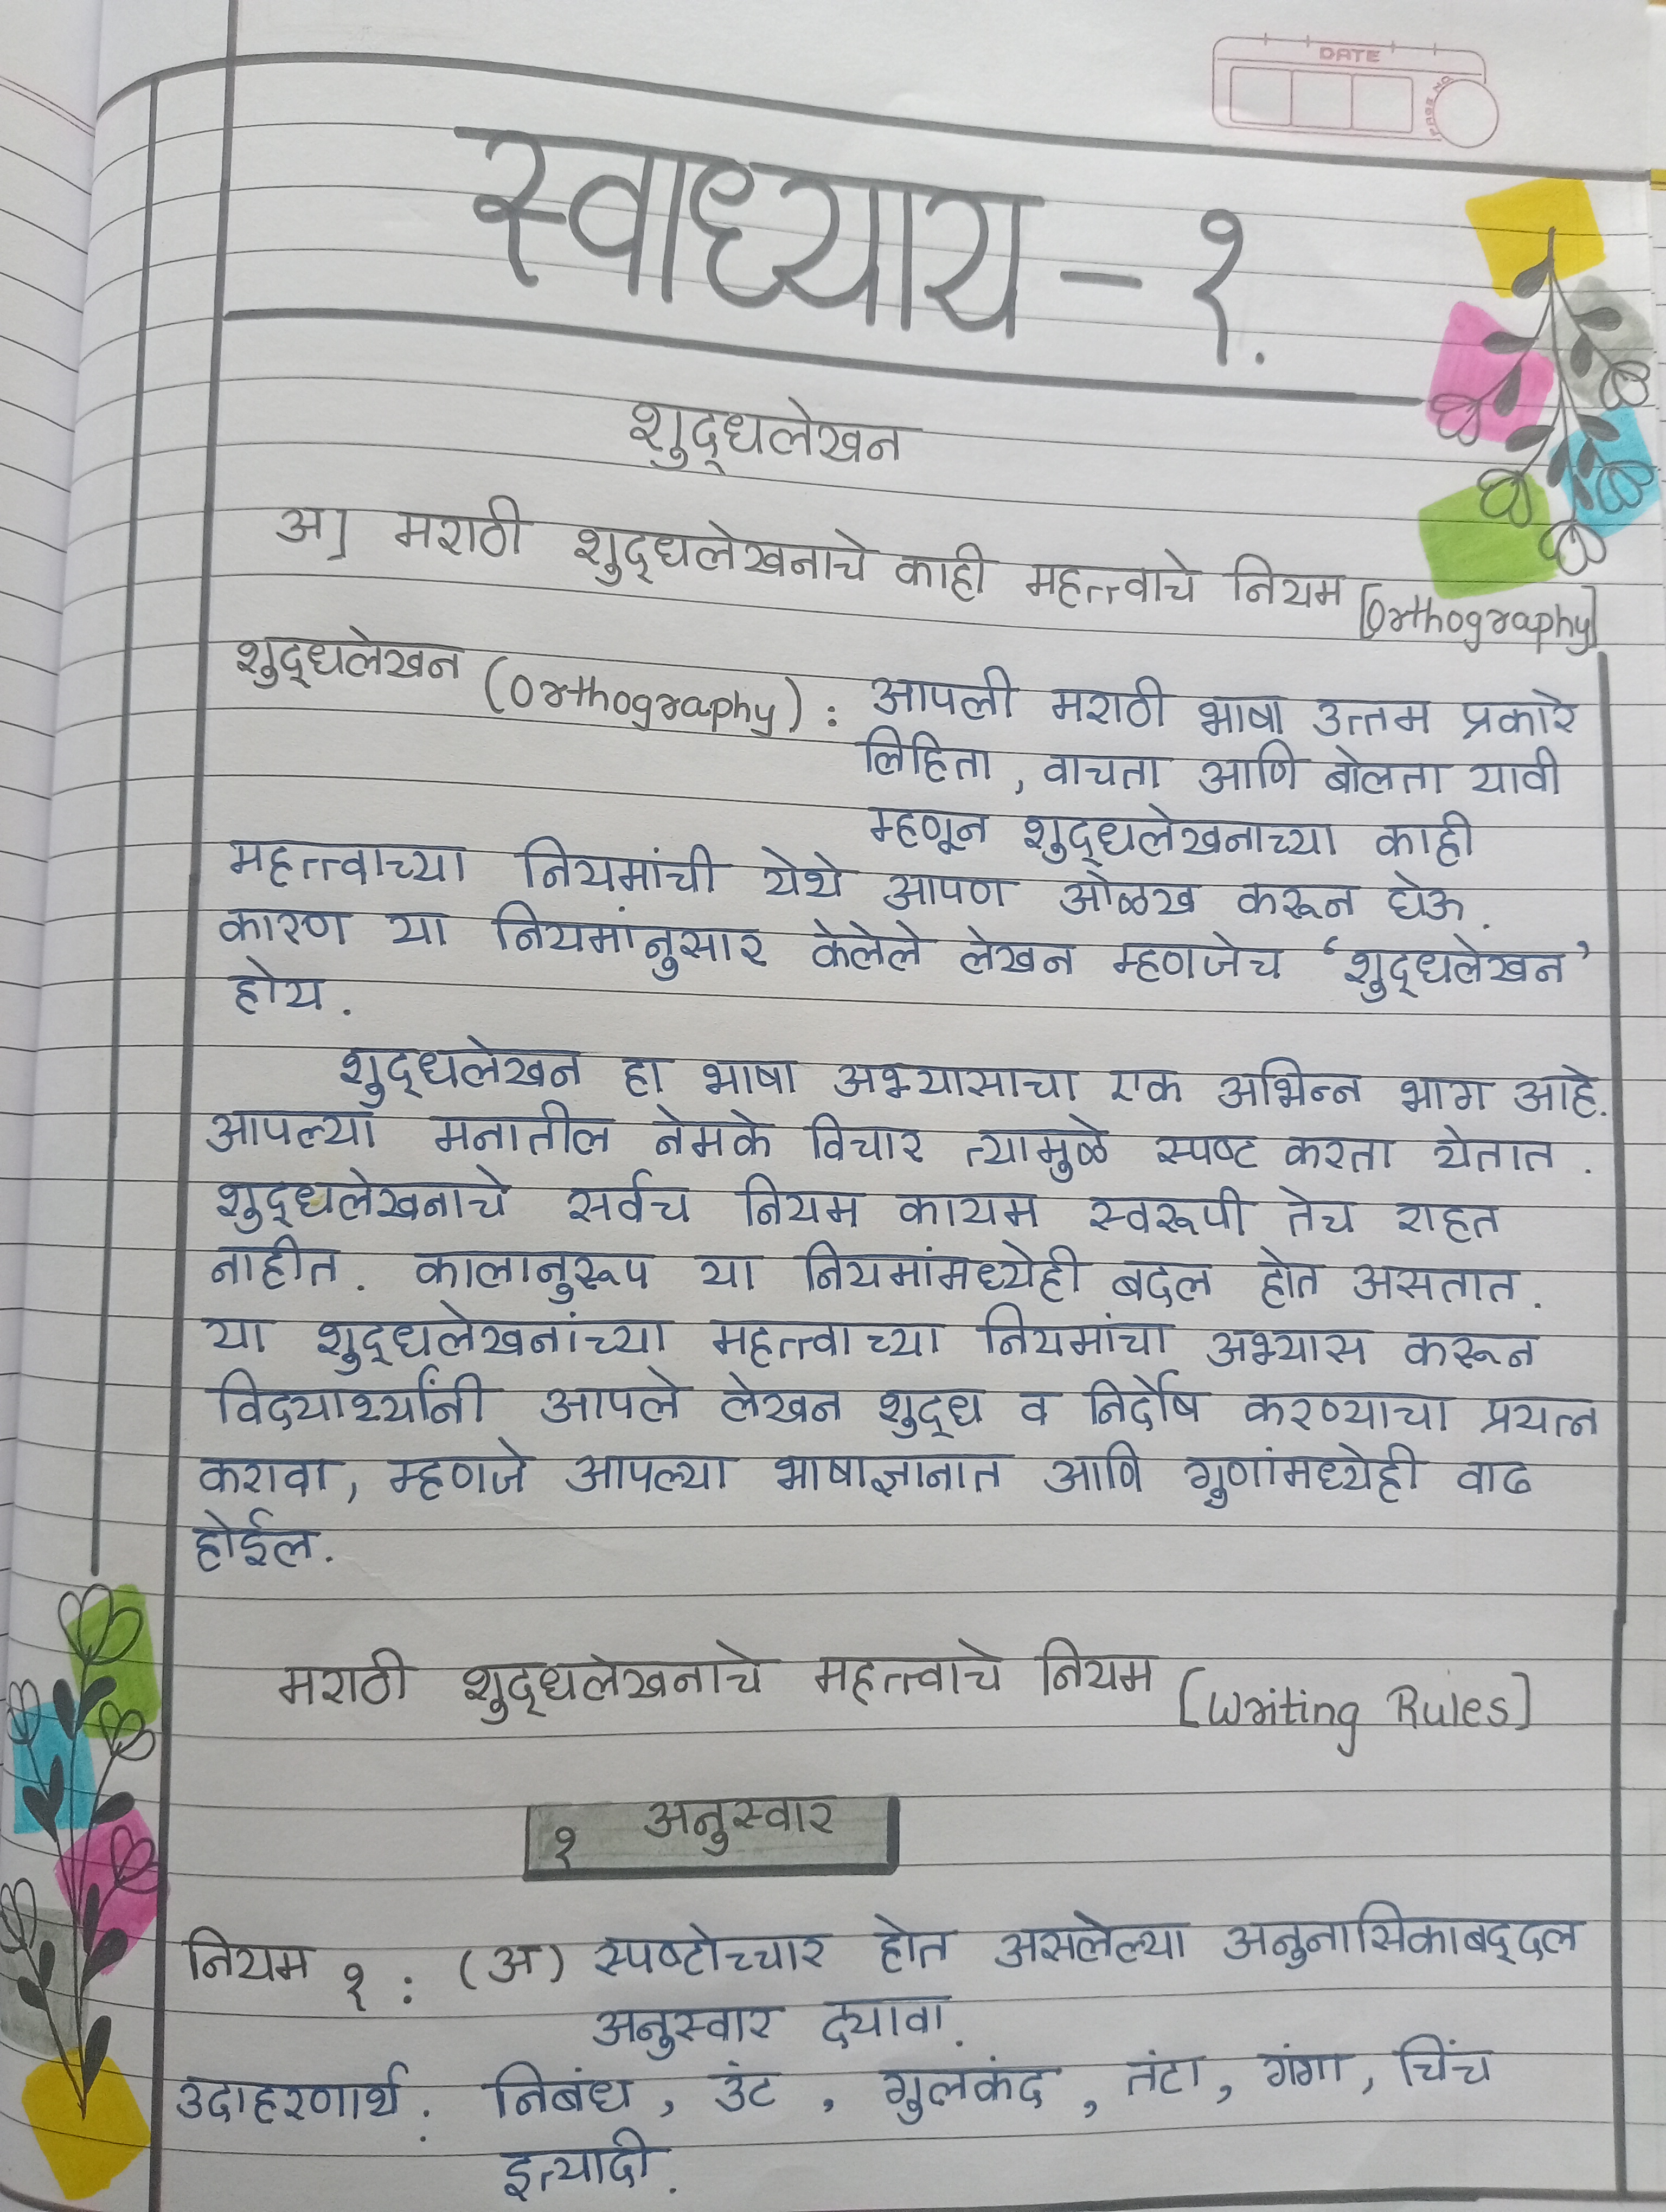 DATE
PAGE NO
स्वाध्याय - १.
शुद्धलेखन
अ] मराठी शुद्धलेखनाचे काही महत्त्वाचे नियम [Orthography]
शुद्धलेखन (Orthography) : आपली मराठी भाषा उत्तम प्रकारे
लिहिता , वाचता आणि बोलता यावी
म्हणून शुद्धलेखनाच्या काही
महत्त्वाच्या नियमांची येथे आपण ओळख करून घेऊ.
कारण या नियमांनुसार केलेले लेखन म्हणजेच ‘शुद्धलेखन’
होय .
शुद्धलेखन हा भाषा अभ्यासाचा एक अभिन्न भाग आहे.
आपल्या मनातील नेमके विचार त्यामुळे स्पष्ट करता येतात .
शुद्धलेखनाचे सर्वच नियम कायम स्वरूपी तेच राहत
नाहीत. कालानुरूप या नियमांमध्येही बदल होत असतात.
या शुद्धलेखनांच्या महत्त्वाच्या नियमांचा अभ्यास करून
विद्यार्थ्यांनी आपले लेखन शुद्ध व निर्दोष करण्याचा प्रयत्न
करावा, म्हणजे आपल्या भाषाज्ञानात आणि गुणांमध्येही वाढ
होईल.
मराठी शुद्धलेखनाचे महत्त्वाचे नियम [Writing Rules]
१ अनुस्वार
नियम १ : (अ) स्पष्टोच्चार होत असलेल्या अनुनासिकाबद्दल
अनुस्वार द्यावा.
उदाहरणार्थ. निबंध , उंट , गुलकंद , तंटा, गंगा, चिंच
इत्यादी.